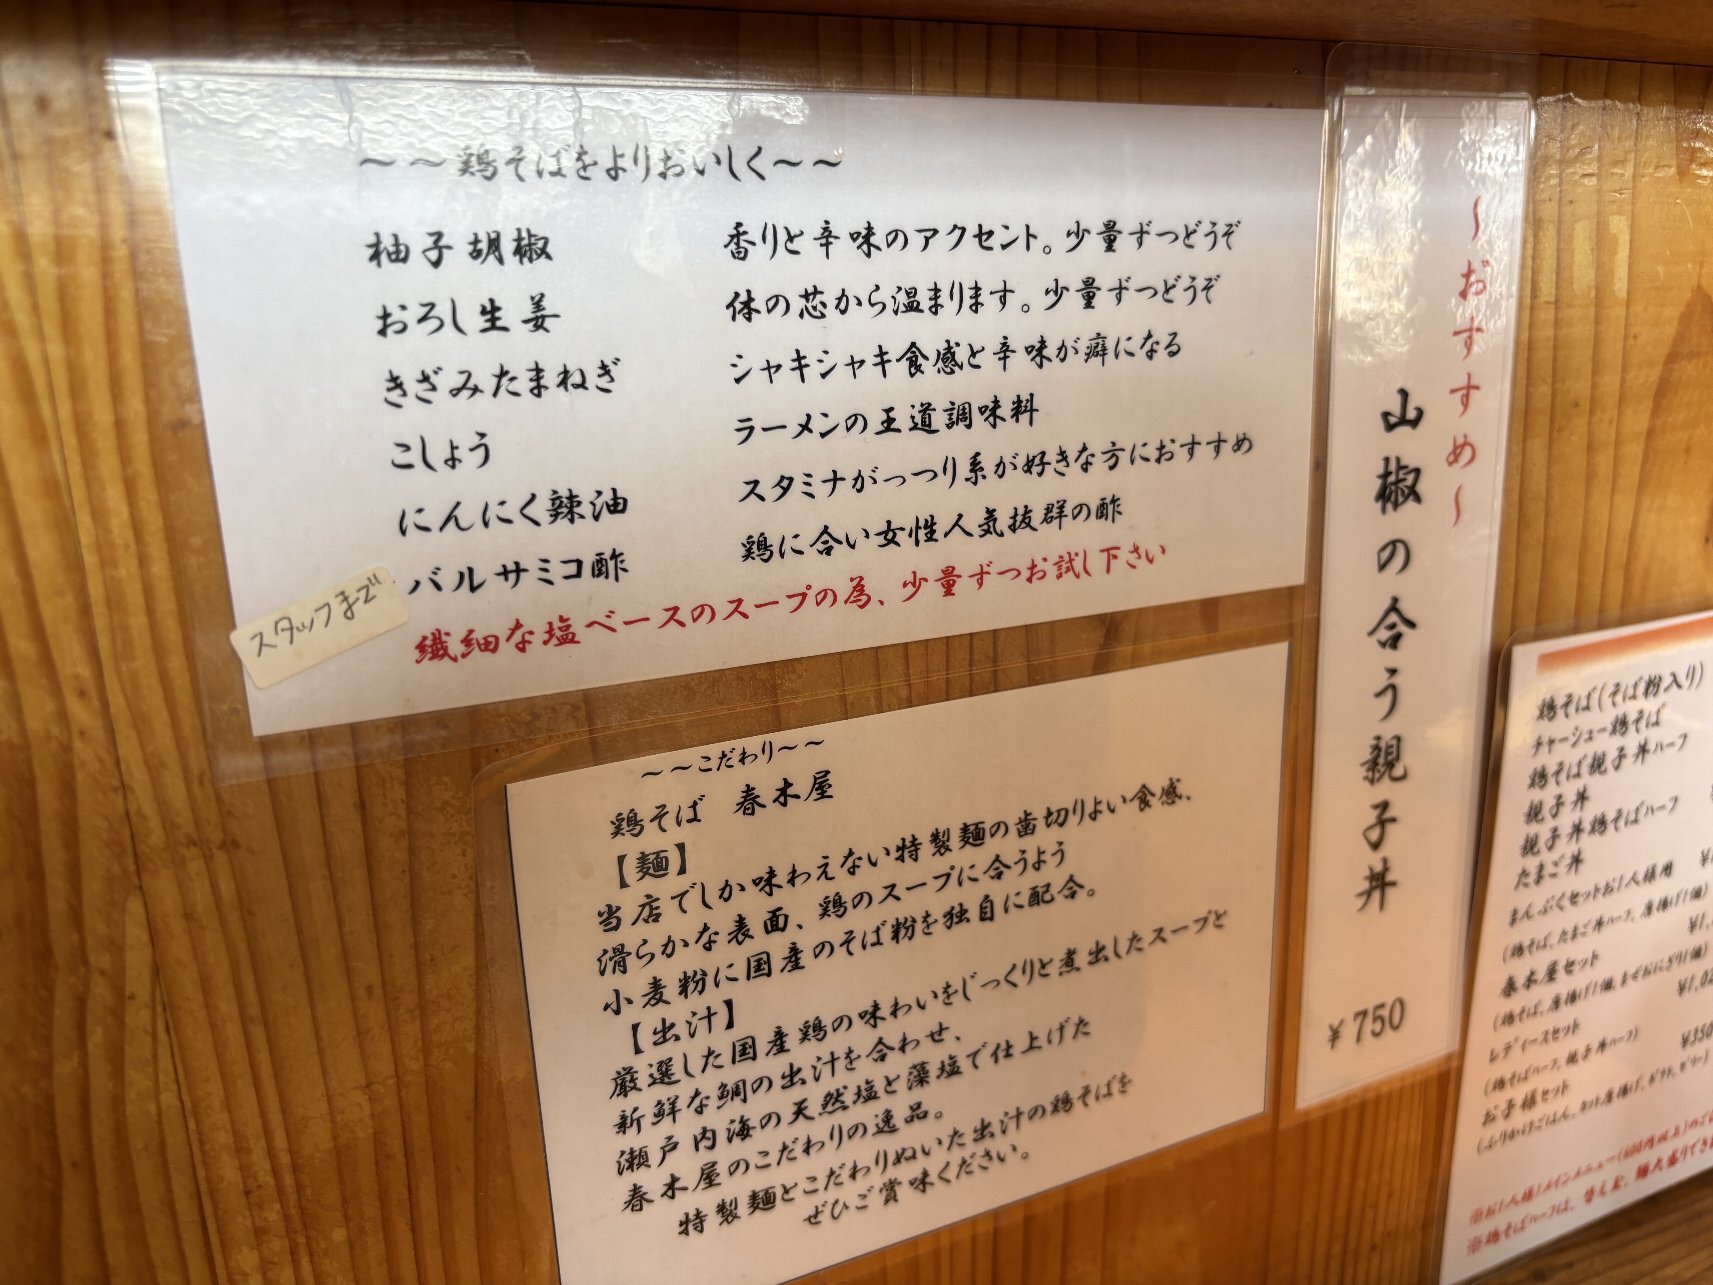 ～～鶏そばをよりおいしく～～
柚子胡椒　香りと辛味のアクセント。少量ずつどうぞ
おろし生姜　体の芯から温まります。少量ずつどうぞ
きざみたまねぎ　シャキシャキ食感と辛味が癖になる
こしょう　ラーメンの王道調味料
にんにく辣油　スタミナがっつり系が好きな方におすすめ
バルサミコ酢　鶏に合い女性人気抜群の酢
スタッフまで
繊細な塩ベースのスープの為、少量ずつお試し下さい
～～こだわり～～
鶏そば　春木屋
【麺】
当店でしか味わえない特製麺の歯切りよい食感、
滑らかな表面、鶏のスープに合うよう
小麦粉に国産のそば粉を独自に配合。
【出汁】
厳選した国産鶏の味わいをじっくりと煮出したスープと
新鮮な鯛の出汁を合わせ、
瀬戸内海の天然塩と藻塩で仕上げた
春木屋のこだわりの逸品。
特製麺とこだわりぬいた出汁の鶏そばを
ぜひご賞味ください。
～おすすめ～
山椒の合う親子丼
￥750
鶏そば(そば粉入り)
チャーシュー鶏そば
鶏そば親子丼ハーフ
親子丼
親子丼鶏そばハーフ
たまご丼
まんぷくセットお1人様用
(鶏そば、たまご丼ハーフ、唐揚げ1個)
春木屋セット
(鶏そば、唐揚げ1個、まぜおにぎり1個)
レディースセット
(鶏そばハーフ、親子丼ハーフ)
お子様セット
(ふりかけごはん、カット唐揚げ、ポテト、ゼリー)
※お1人様1メインメニュー(600円以上)のご
※鶏そばハーフは、替え玉、麺大盛りでき